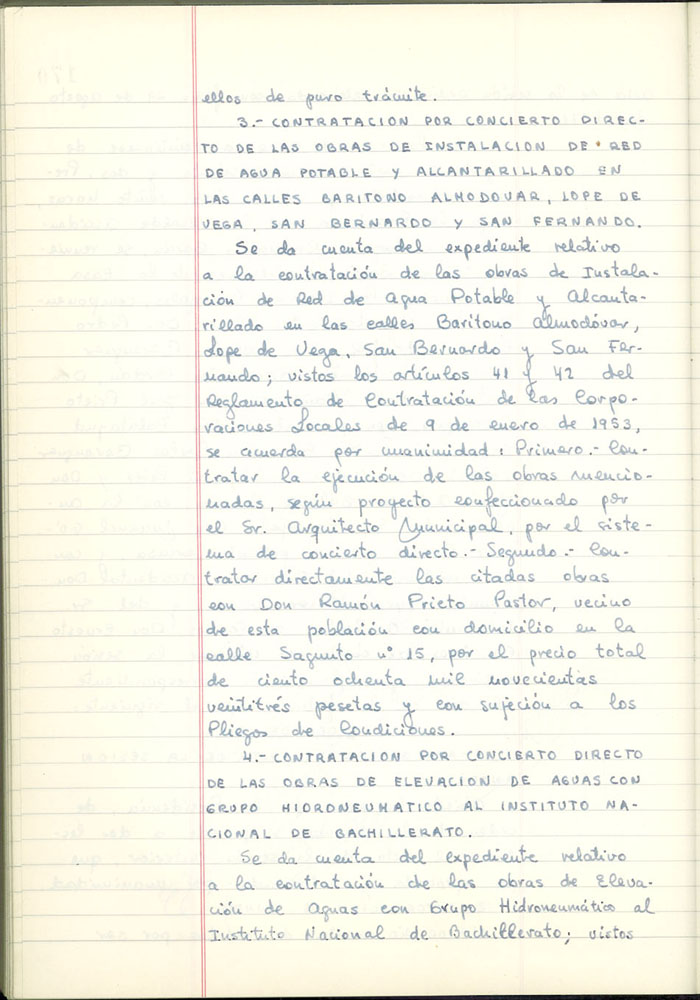 ellos de puro trámite.
3.- CONTRATACION POR CONCIERTO DIREC-
TO DE LAS OBRAS DE INSTALACION DE RED
DE AGUA POTABLE Y ALCANTARILLADO EN
LAS CALLES BARITONO ALMODOVAR, LOPE DE
VEGA, SAN BERNARDO Y SAN FERNANDO.
Se da cuenta del expediente relativo
a la contratación de las obras de Instala-
ción de Red de Agua Potable y Alcanta-
rillado en las calles Barítono Almodóvar,
Lope de Vega, San Bernardo y San Fer-
nando; vistos los artículos 41 y 42 del
Reglamento de Contratación de las Corpo-
raciones Locales de 9 de enero de 1953,
se acuerda por unanimidad: Primero.- Con-
tratar la ejecución de las obras mencio-
nadas, según proyecto confeccionado por
el Sr. Arquitecto Municipal, por el siste-
ma de concierto directo.- Segundo.- Con-
tratar directamente las citadas obras
con Don Ramón Prieto Pastor, vecino
de esta población con domicilio en la
calle Sagunto nº 15, por el precio total
de ciento ochenta mil novecientas
veintitrés pesetas y con sujeción a los
Pliegos de Condiciones.
4.- CONTRATACION POR CONCIERTO DIRECTO
DE LAS OBRAS DE ELEVACION DE AGUAS CON
GRUPO HIDRONEUMATICO AL INSTITUTO NA-
CIONAL DE BACHILLERATO.
Se da cuenta del expediente relativo
a la contratación de las obras de Eleva-
ción de Aguas con Grupo Hidroneumático al
Instituto Nacional de Bachillerato; vistos